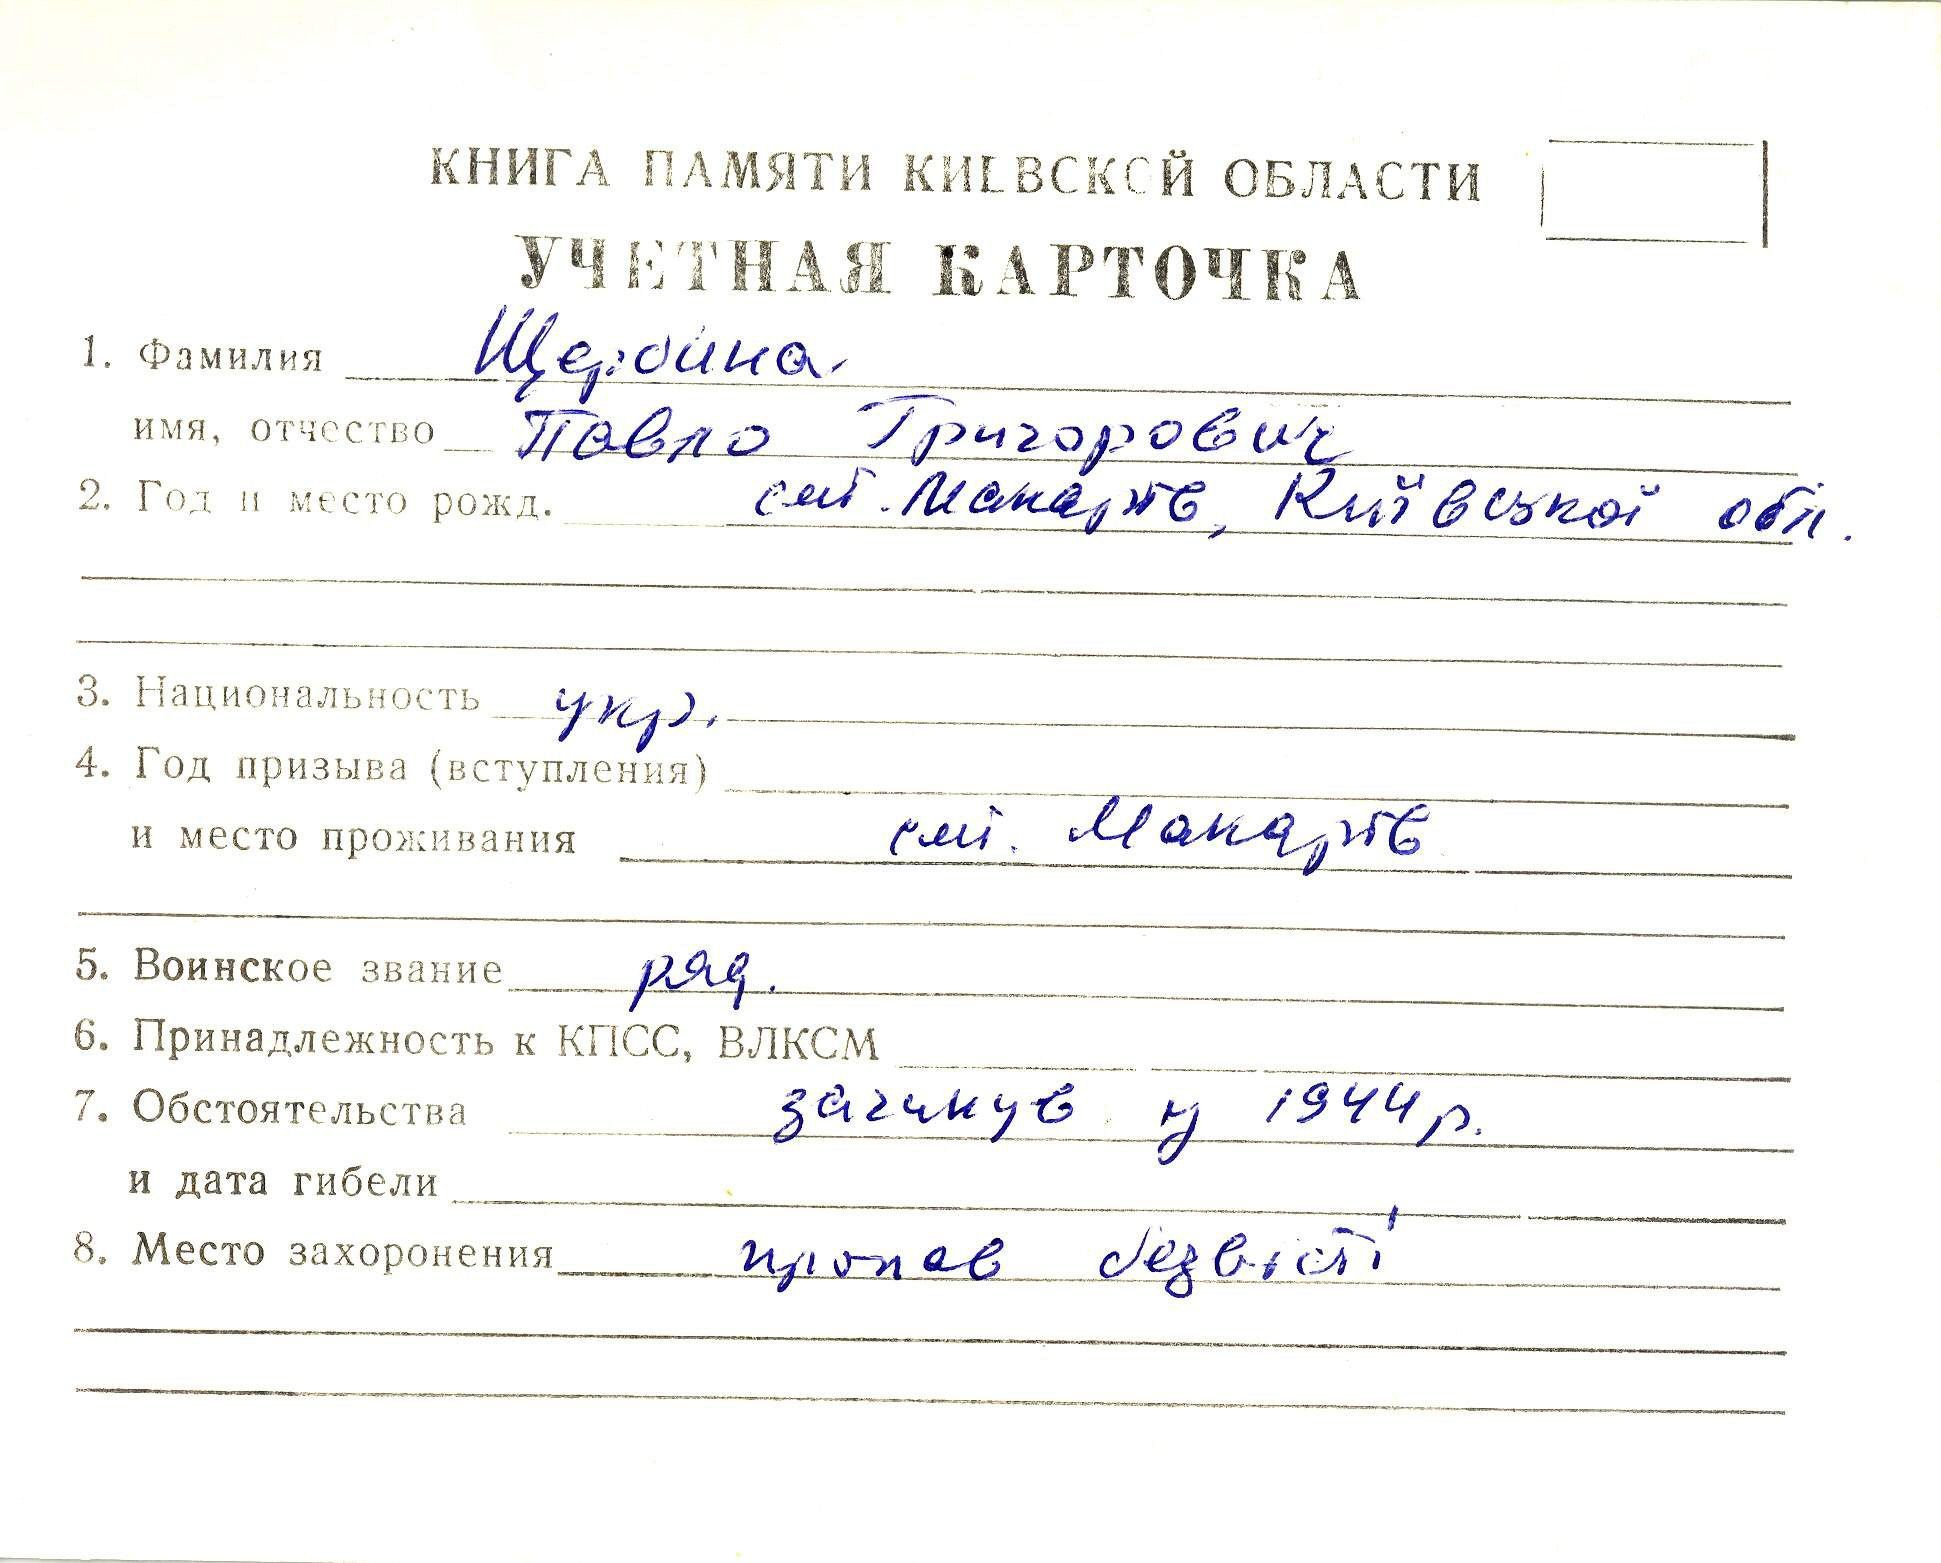 КНИГА ПАМЯТИ КИЕВСКОЙ ОБЛАСТИ
УЧЕТНАЯ КАРТОЧКА
1. Фамилия Щербина.
имя, отчество Павло Григорович
2. Год и место рожд. смт. Макарів, Київської обл.
3. Национальность укр.
4. Год призыва (вступления)
и место проживания смт. Макарів
5. Воинское звание ряд.
6. Принадлежность к КПСС, ВЛКСМ
7. Обстоятельства загинув у 1944 р.
и дата гибели
8. Место захоронения пропав безвісті